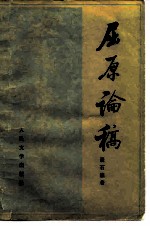 屈原論稿
聶石樵著
人民文学出版社